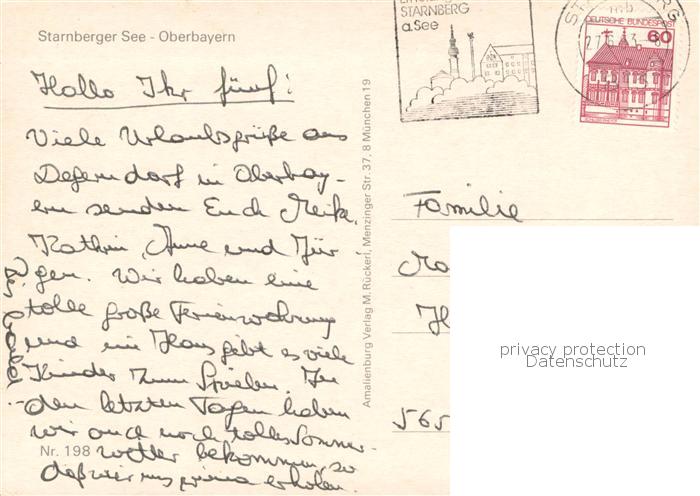 Starnberger See - Oberbayern
Hallo Ihr fünf!
Viele Urlaubsgrüße aus
Degerndorf in Oberbay-
ern senden Euch Meike,
Kathrin, Anne und Jür-
gen. Wir haben eine
tolle große Ferienwohnung
und im Haus gebt es viele
Kinder zum Spielen. In
den letzten Tagen haben
wir auch noch tolles Sommer-
wetter bekommen, so
daß wir uns prima erholen.
Nr. 198
Amalienburg Verlag M. Rückerl, Menzinger Str. 37, 8 München 19
STARNBERG
a.See
DEUTSCHE BUNDESPOST
60
Familie
565
privacy protection
Datenschutz